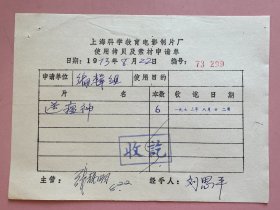 上海科学教育电影制片厂
使用拷贝及素材申请单
日期：1973年8月22日 编号：73 299
申请单位 编辑组 使用目的
片名 本数 收讫日期
送瘟神 6 一九七三年八月廿二日
收讫
主管： 8.22 经手人：刘思平